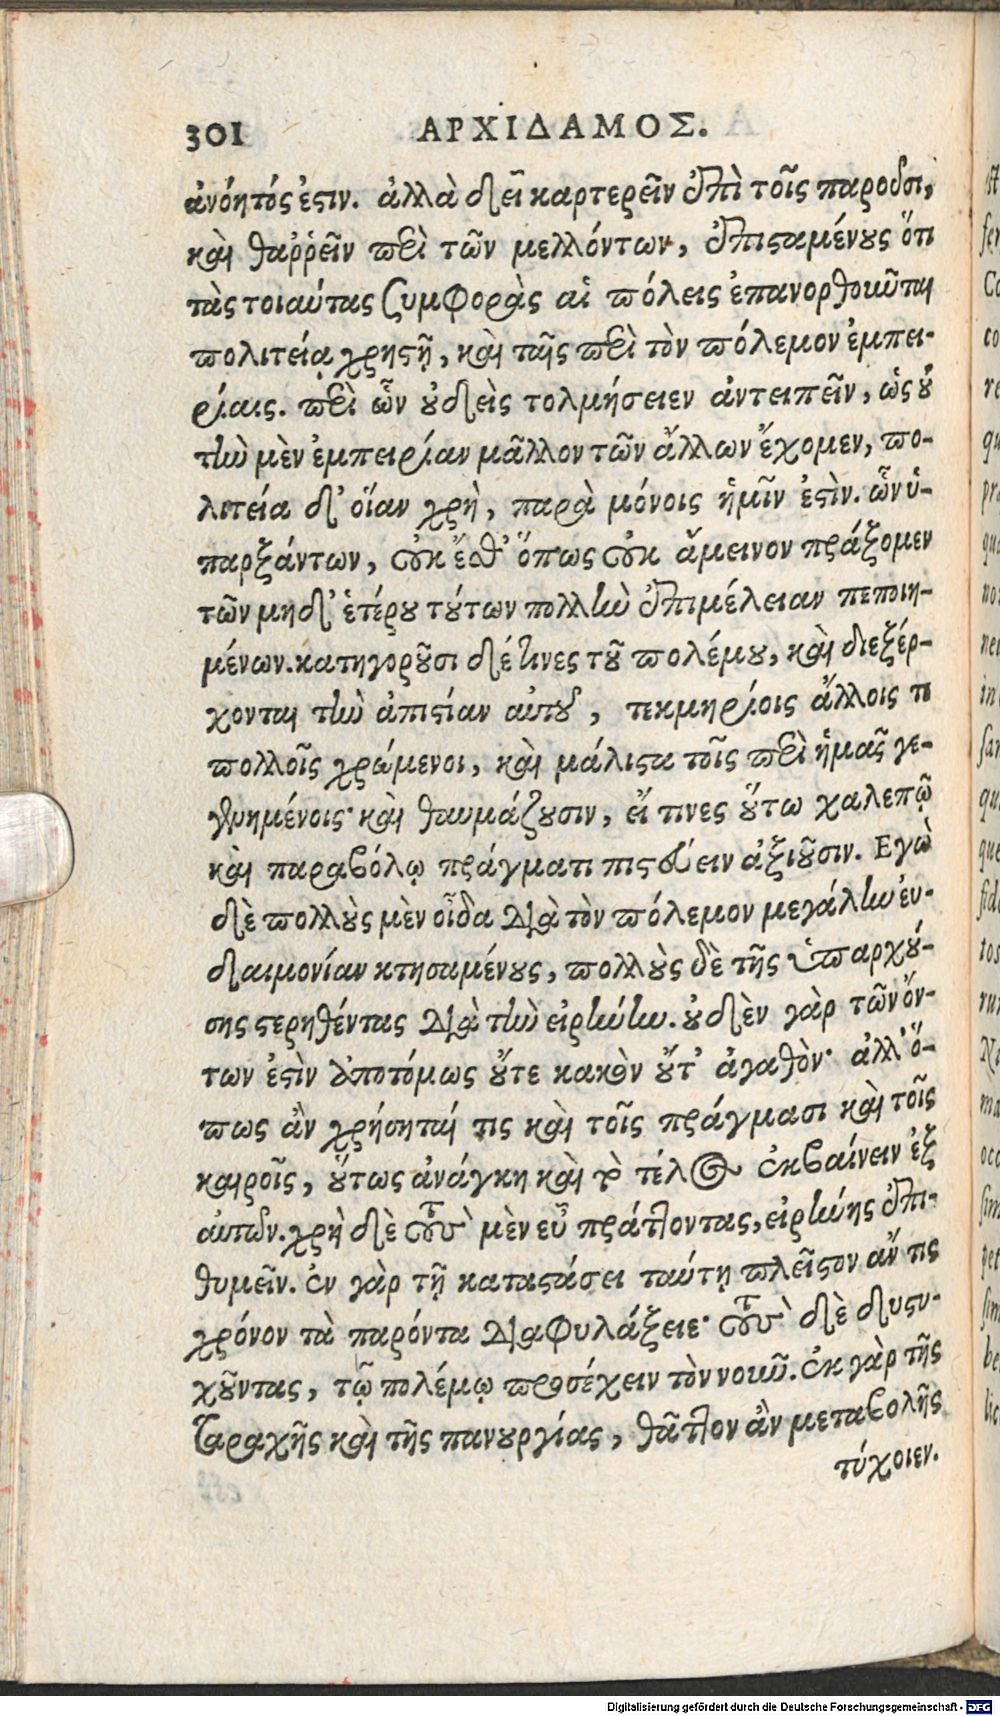 301 ΑΡΧΙΔΑΜΟΣ.
ἀνόητός ἐστιν. ἀλλὰ δεῖ καρτερεῖν ἐπὶ τοῖς παροῦσι,
καὶ θαῤῥεῖν περὶ τῶν μελλόντων, ἐπισταμένους ὅτι
τὰς τοιαύτας συμφορὰς αἱ πόλεις ἐπανορθοῦνται
πολιτείᾳ χρηστῇ, καὶ ταῖς περὶ τὸν πόλεμον ἐμπει-
ρίαις. περὶ ὧν οὐδεὶς τολμήσειεν ἀντειπεῖν, ὡς οὐ
τὴν μὲν ἐμπειρίαν μᾶλλον τῶν ἄλλων ἔχομεν, πο-
λιτεία δ' οἵαν χρὴ, παρὰ μόνοις ἡμῖν ἐστὶν. ὧν ὑ-
παρξάντων, οὐκ ἔσθ' ὅπως οὐκ ἄμεινον πράξομεν
τῶν μηδ' ἑτέρου τούτων πολλὴν ἐπιμέλειαν πεποιη-
μένων. κατηγοροῦσι δέ τινες τοῦ πολέμου, καὶ διεξέρ-
χονται τὴν ἀπιστίαν αὐτοῦ, τεκμηρίοις ἄλλοις τε
πολλοῖς χρώμενοι, καὶ μάλιστα τοῖς περὶ ἡμᾶς γε-
γενημένοις· καὶ θαυμάζουσιν, εἴ τινες οὕτω χαλεπῷ
καὶ παραβόλῳ πράγματι πιστεύειν ἀξιοῦσιν. Εγὼ
δὲ πολλοὺς μὲν οἶδα διὰ τὸν πόλεμον μεγάλην εὐ-
δαιμονίαν κτησαμένους, πολλοὺς δὲ τῆς ὑπαρχού-
σης στερηθέντας διὰ τὴν εἰρήνην. οὐδὲν γὰρ τῶν ὄν-
των ἐστὶν ἀποτόμως οὔτε κακὸν οὔτ' ἀγαθὸν· ἀλλ' ὅ-
πως ἂν χρήσηταί τις καὶ τοῖς πράγμασι καὶ τοῖς
καιροῖς, οὕτως ἀνάγκη καὶ τὸ τέλος ἐκβαίνειν ἐξ
αὐτῶν. χρὴ δὲ τοὺς μὲν εὖ πράττοντας, εἰρήνης ἐπι-
θυμεῖν. ἐν γὰρ τῇ καταστάσει ταύτῃ πλεῖστον ἄν τις
χρόνον τὰ παρόντα διαφυλάξειε· τοὺς δὲ δυστυ-
χοῦντας, τῷ πολέμῳ προσέχειν τὸν νοῦν. ἐκ γὰρ τῆς
ταραχῆς καὶ τῆς πανουργίας, θᾶττον ἂν μεταβολῆς
τύχοιεν.
Digitalisierung gefördert durch die Deutsche Forschungsgemeinschaft - DFG